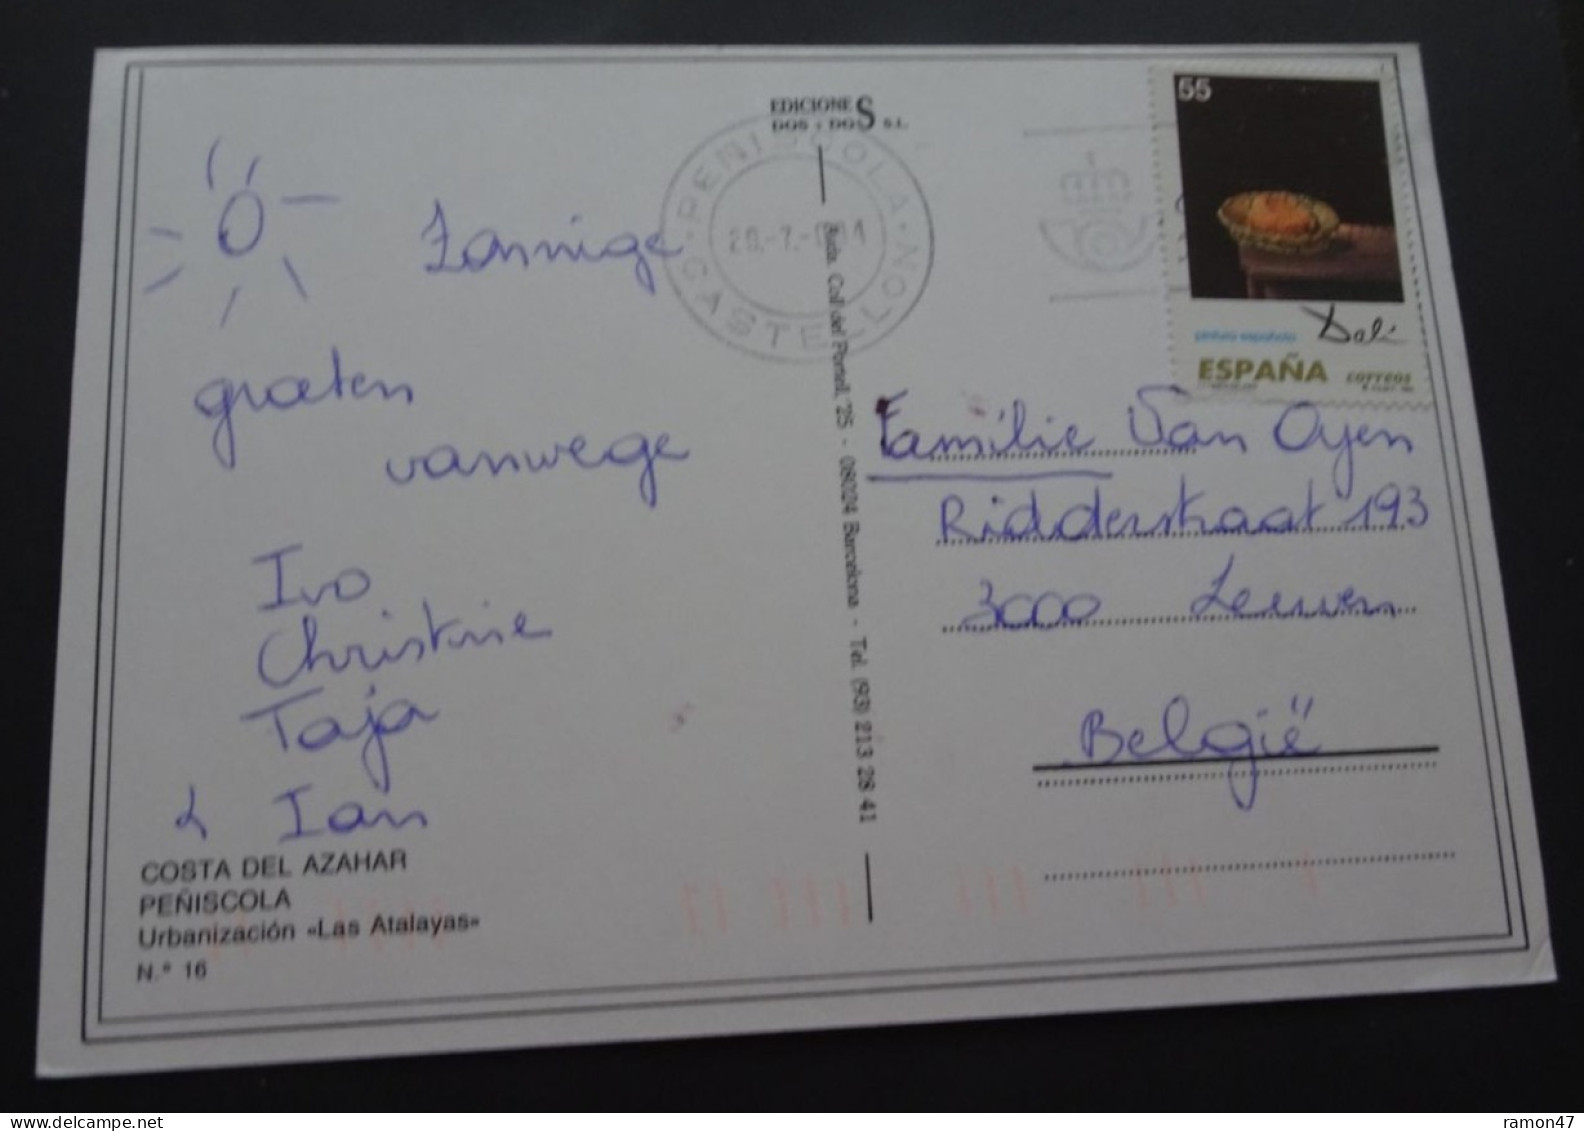 EDICIONES
DOS y DOS S.L.
PEÑISCOLA · CASTELLON
55
pintura española
Dalí
ESPAÑA
CORREOS
Zonnige
groeten
vanwege
Ivo
Christine
Taja
& Ian
COSTA DEL AZAHAR
PEÑISCOLA
Urbanización «Las Atalayas»
N.º 16
Bda. Coll del Portell, 25 - 08024 Barcelona - Tel. (93) 213 28 41
Familie Van Oyen
Ridderstraat 193
3000 Leuven
België
ramon47